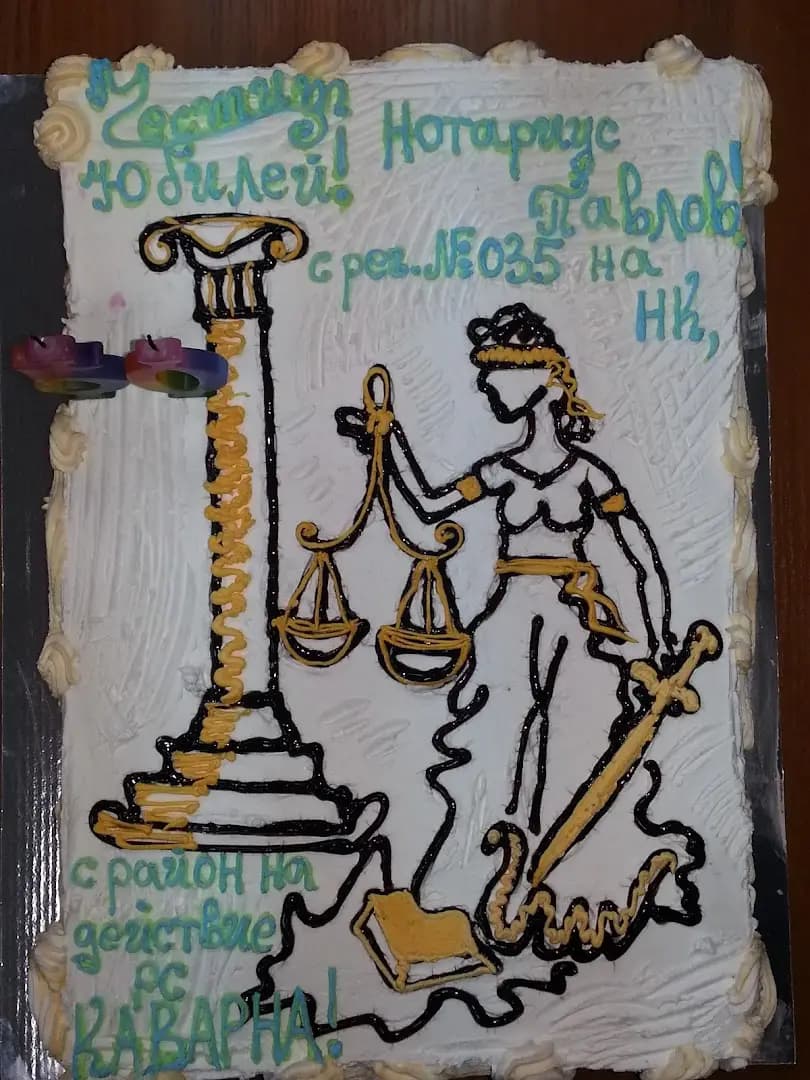 Честит
Юбилей!
Нотариус
Павлов!
с рег. № 035 на
НК,
с район на
действие
РС
КАВАРНА!